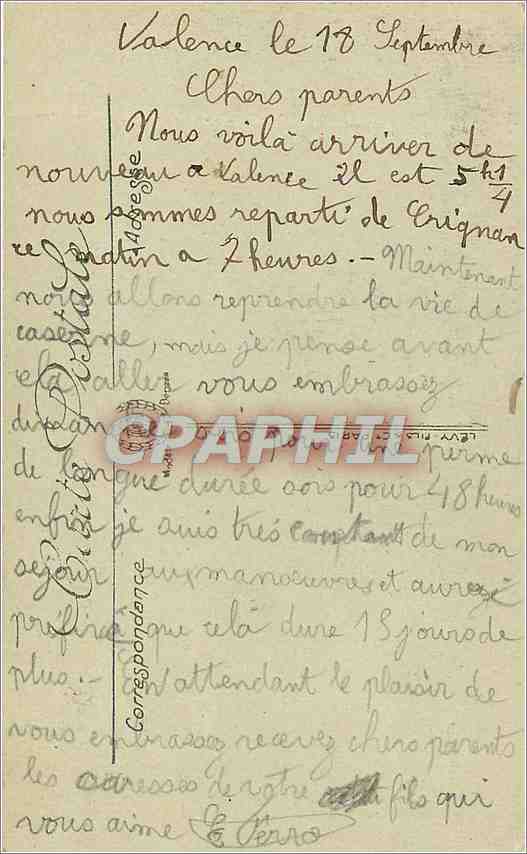 Valence le 18 Septembre
Chers parents
Nous voilà arriver de
nouveau a Valence Il est 5h1/4
nous sommes reparti de Grignan
ce matin a 7 heures. - Maintenant
nous allons reprendre la vie de
caserne, mais je pense avant
cela aller vous embrassez
perme
de longue durée sois pour 48 heures
enfin je suis très de mon
séjour aux manœuvres et aurez
préféré que celà dure 15 jours de
plus. - En attendant le plaisir de
vous embrassez recevez chers parents
les caresses de votre fils qui
vous aime E Perro
Carte Postale
Adresse
Correspondance
LEVY FILS & Cie PARIS
CPAPHIL